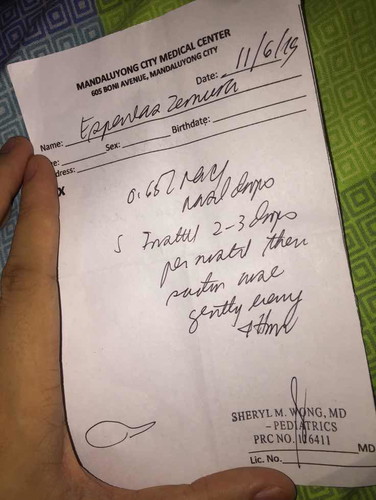 MANDALUYONG CITY MEDICAL CENTER
605 BONI AVENUE, MANDALUYONG CITY
Date: 11/6/19
Name:
Sex: Birthdate:
dress:
nasal drops
S Instill 2-3 drops
per nostril then
suction nose
gently every
SHERYL M. WONG, MD
- PEDIATRICS
PRC NO. 116411
MD
Lic. No.